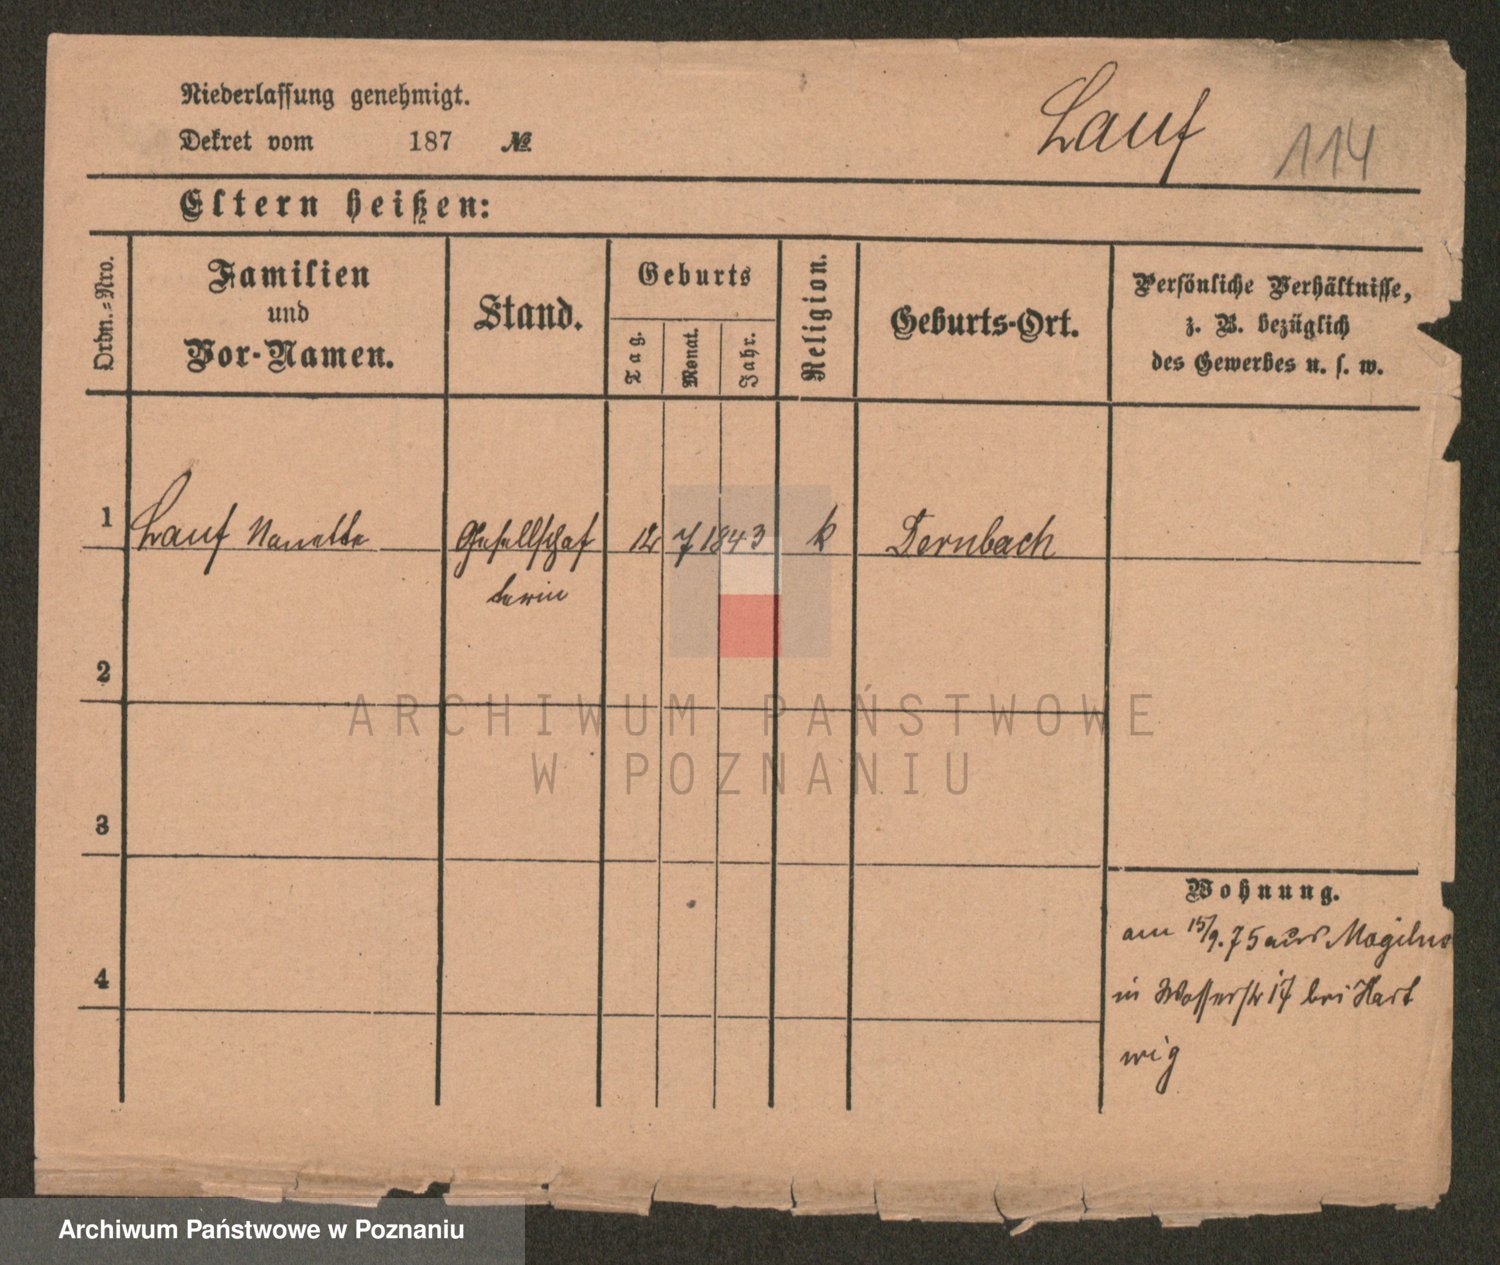 Niederlassung genehmigt.
Dekret vom 187 №
Lauf 114
Eltern heißen:
Ordn.-Nro.
Familien
und
Vor-Namen.
Stand.
Geburts
Tag.
Monat.
Jahr.
Religion.
Geburts-Ort.
Persönliche Verhältnisse,
z. B. bezüglich
des Gewerbes u. s. w.
1 Lauf Nanette Gesellschaf 12 7 1843 k Dernbach
terin
2
3
4
Wohnung.
am 15/9.75 aus Mogilno
in Wasserstr 17 bei Hart
wig
ARCHIWUM PAŃSTWOWE
W POZNANIU
Archiwum Państwowe w Poznaniu